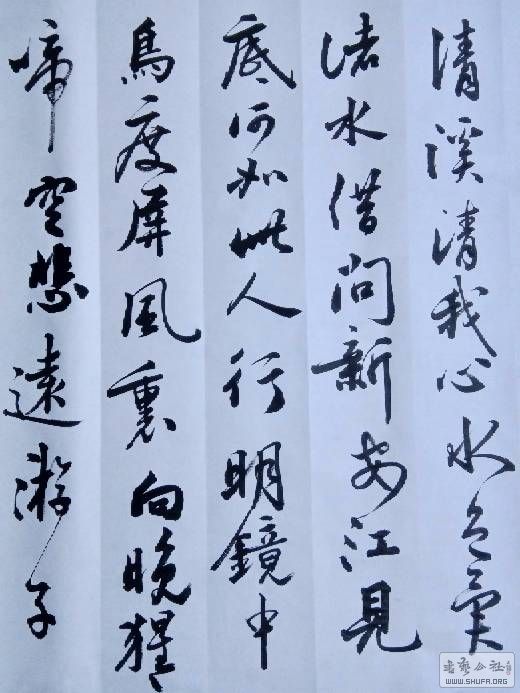 清溪清我心水色異
諸水借問新安江見
底何如此人行明鏡中
鳥度屏風裏向晚猩々
啼空悲遠游子
书艺公社
WWW.SHUFA.ORG